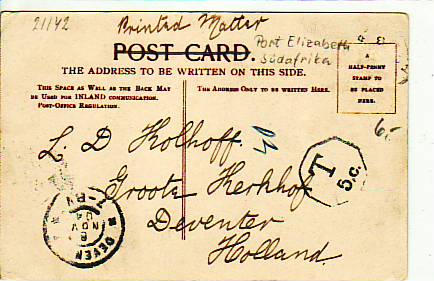 21142
Printed Matter
Port Elizabeth
Südafrika
POST CARD.
THE ADDRESS TO BE WRITTEN ON THIS SIDE.
THIS SPACE AS WELL AS THE BACK MAY
BE USED FOR INLAND COMMUNICATION.
POST-OFFICE REGULATION.
THE ADDRESS ONLY TO BE WRITTEN HERE.
A
HALF-PENNY
STAMP TO
BE PLACED
HERE.
6.-
L. D Kolhoff.
T
5.c.
Groote Kerkhof
Deventer
Holland.
DEVEN
NOV
04